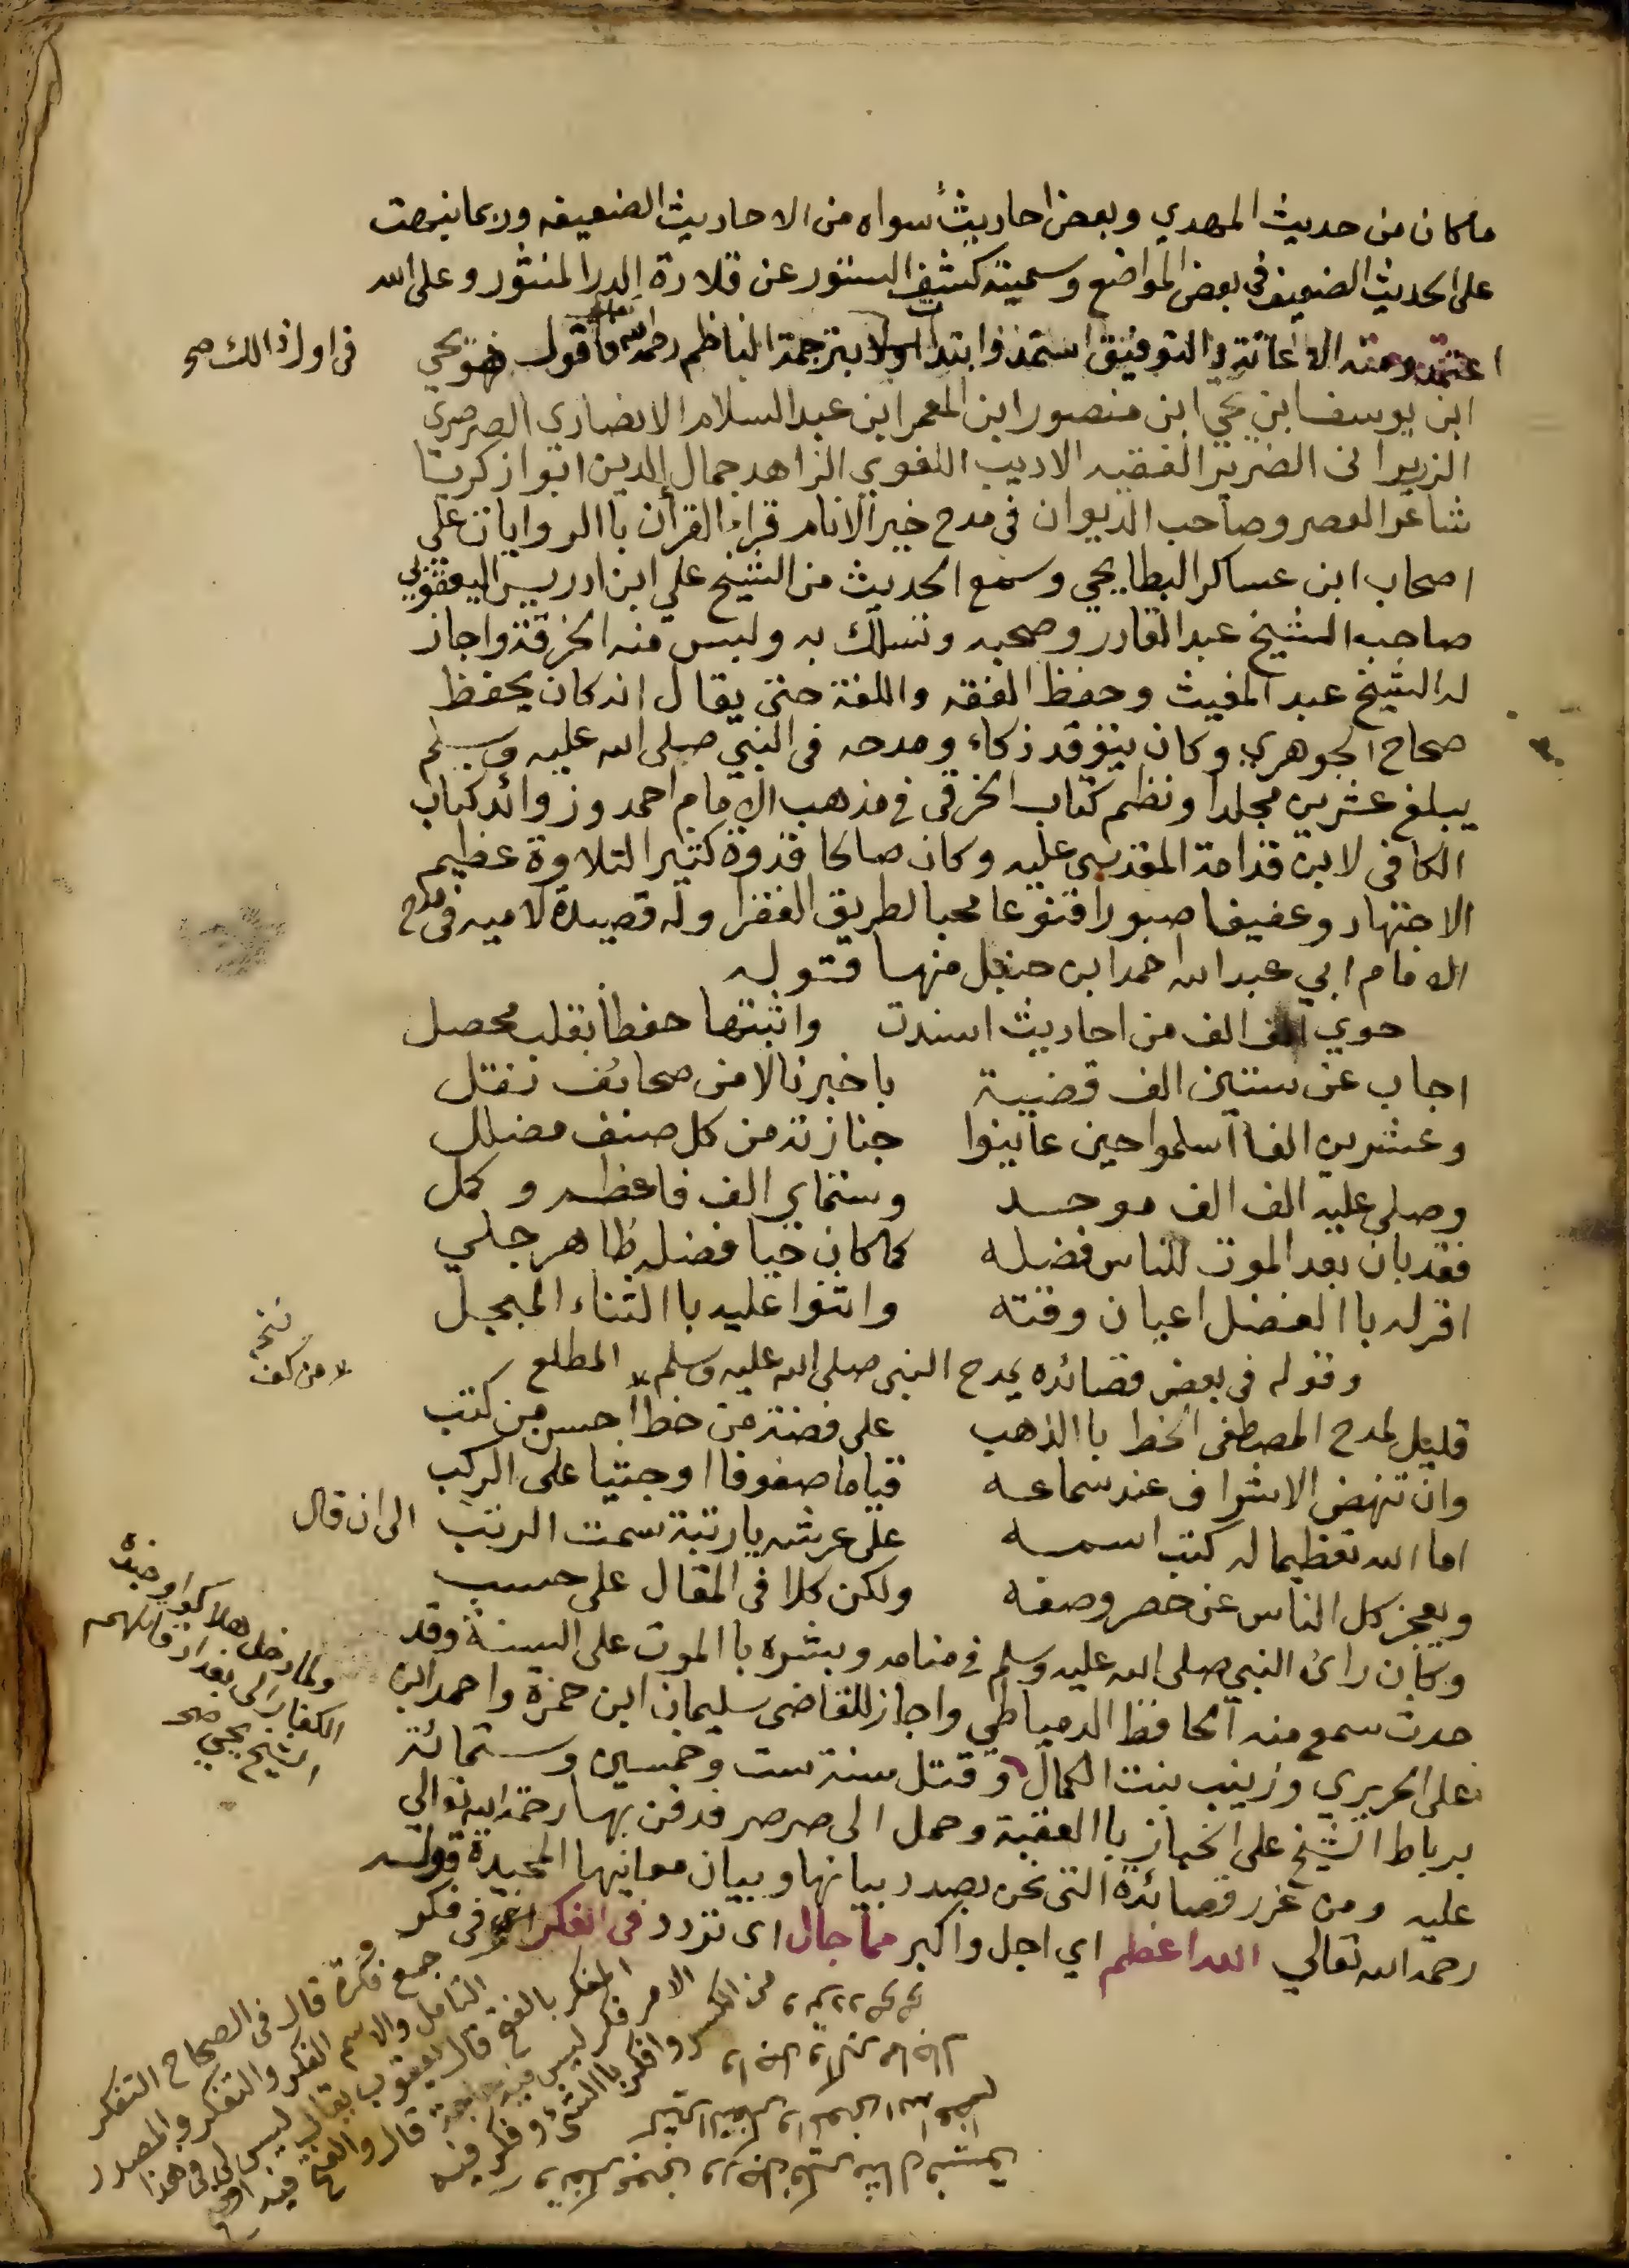 ماكان من حديث المهدي وبعض احاديث سواه من الاحاديث الضعيفه وربما نبهت
على الحديث الضعيف في بعض المواضع وسميته كشف الستور عن قلادة الدر المنثور وعلى الله
اعتمد ومنه الاعانة والتوفيق استمد وابتدا اولا بترجمة الناظم رحمه الله تعالى فاقول هو يحي
في اول ذالك صح
ابن يوسف ابن يحي ابن منصور ابن المعمر ابن عبد السلام الانصاري الصرصري
الزريراني الضرير الفقيه الاديب اللغوي الزاهد جمال الدين ابو ازكريا
شاعر العصر وصاحب الديوان في مدح خير الانام قراء القرأن باالروايات على
اصحاب ابن عساكر البطايحي وسمع الحديث من الشيخ علي ابن ادريس اليعقوبي
صاحب الشيخ عبد القادر وصحبه وتسلك به ولبس منه الخرقة واجاز
له الشيخ عبد المغيث وحفظ الفقه واللغة حتى يقال انه كان يحفظ
صحاح الجوهري وكان يتوقد ذكاء ومدحه في النبي صلى الله عليه وسلم
يبلغ عشرين مجلدا ونظم كتاب الخرقي في مذهب الامام احمد وزوائد كتاب
الكافي لابن قدامة المقدسي عليه وكان صالحا قدوة كثير التلاوة عظيم
الاجتهاد وعفيفا صبورا قنوعا محبا لطريق الفقرا وله قصيدة لاميه في مدح
الامام ابي عبد الله احمد ابن حنبل منها قوله
حوي الف الف من احاديث اسندت واثبتها حفظا بقلب محصل
اجاب عن ستين الف قضية باخبرنا لا من صحائف نقل
وعشرين الفا اسلموا حين عاينوا جنازته من كل صنف مضلل
وصلى عليه الف الف موحد وستماي الف فاعظم وكمل
فقد بان بعد الموت للناس فضله كما كان حيا فضله ظاهر جلي
اقر له باالفضل اعيان وقته واثنوا عليه باالثناء المبجل
وقوله في بعض قصائده يمدح النبي صلى الله عليه وسلم المطلع
قليل لمدح المصطفى الخط باالذهب على فضة من خط احسن من كتب
من كف
وان تنهض الاشراف عند سماعه قياما صفوفا او جثيا على الركب
اما الله تعظيما له كتب اسمه على عرشه يا رتبة سمت الرتب الى ان قال
ويعجز كل الناس عن حصر وصفه ولكن كلا في المقال على حسب
وكان رائ النبي صلى الله عليه وسلم في منامه وبشره باالموت على السنة وقد
حدث سمع منه الحافظ الدمياطي واجاز للقاضي سليمان ابن حمزة واحمد ابن
على الحريري وزينب بنت الكمال وقتل سنة ست وخمسين وستمائة
ولما دخل هلاكوا وجنده
الكفار الى بغداد قاتلهم
الشيخ يحيى صح
برباط الشيخ على الخباز باالعقبة وحمل الى صرصر فدفن بها رحمة الله توالي
عليه ومن غرر قصائدة التي نحن بصدد بيانها وبيان معانيها المجيدة قوله
رحمه الله تعالي الله اعظم اي اجل واكبر مما جال اى تردد في الفكر اي في فكر
جمع فكرة قال في الصحاح التفكر
التامل والاسم الفكر والتفكر والمصدر
الفكر بالفتح قال يعقوب يقال ليس لي في هذا
الامر فكر ليس فيه حاجة قال والفتح فيه افصح
من الكسر وافكر باالشئ وفكر فيه